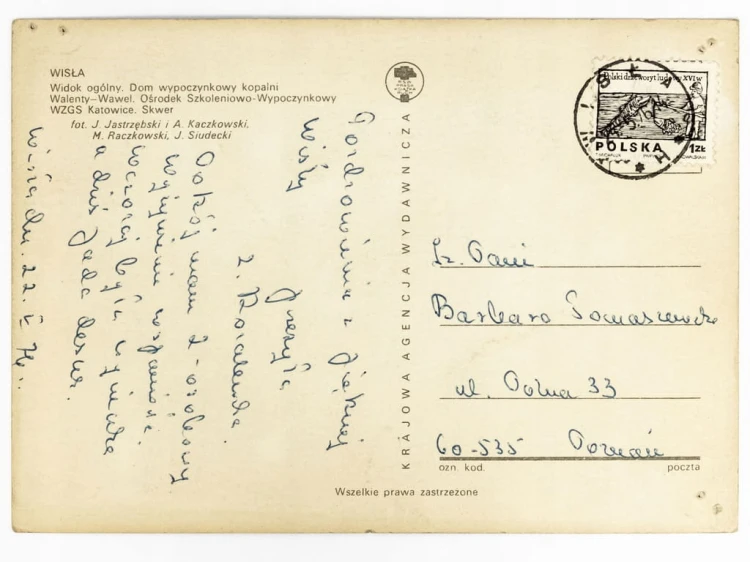 WISŁA
Widok ogólny. Dom wypoczynkowy kopalni
Walenty-Wawel. Ośrodek Szkoleniowo-Wypoczynkowy
WZGS Katowice. Skwer
fot. J. Jastrzębski i A. Kaczkowski,
M. Raczkowski, J. Siudecki
Pozdrowienia z pięknej
Wisły
przesyła
Z. Kowalewska.
Pokój mam 2-osobowy
wyżywienie wspaniałe.
Wczoraj była
a dziś pada deszcz.
Wisła dn. 22.
KRAJOWA AGENCJA WYDAWNICZA
Polski drzeworyt ludowy XVI w
POLSKA 1ZŁ
WISŁA
Sz. Pani
Barbara Tomaszewska
ul. Polna 33
60-535 Poznań
ozn. kod. poczta
Wszelkie prawa zastrzeżone